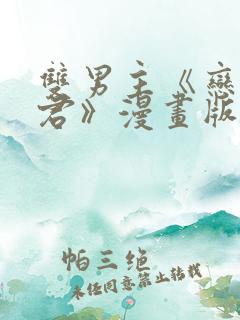 雙男主《戀
君》漫畫版
帕三绝
未经同意禁止转载